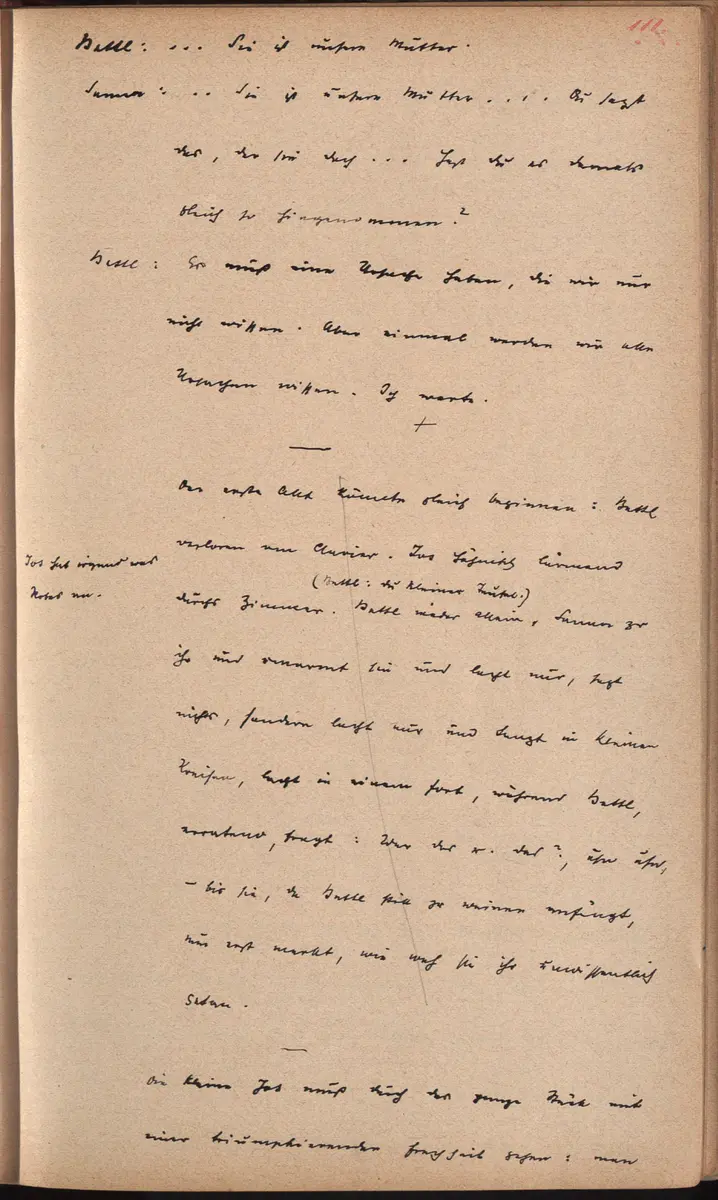 112.
Bettl: ... Sie ist unsere Mutter.
: .. Sie ist unsere Mutter .... Du sagst
das, der sie doch ... Hast du es damals
gleich so hingenommen?
Bettl: Es muß eine Ursache haben, die wir nur
nicht wissen. Aber einmal werden wir alle
Ursachen wissen. Ich warte.
+
—
Der erste Akt könnte gleich beginnen: Bettl
verloren am Clavier. lärmend
(Bettl: du kleiner Teufel!)
durchs Zimmer. Bettl wieder allein, zu
ihr und umarmt sie und lacht nur, sagt
nichts, sondern lacht nur und tanzt in kleinen
Kreisen, lacht in einem fort, während Bettl,
erratend, fragt: War der u. das?, usw usw,
– bis sie, da Bettl still zu weinen anfängt,
nun erst merkt, wie weh sie ihr unwissentlich
getan.
hat irgend was
Rotes an.
—
Die kleine muß durch das ganze Stück mit
einer triumphierenden Frechheit gehen: man